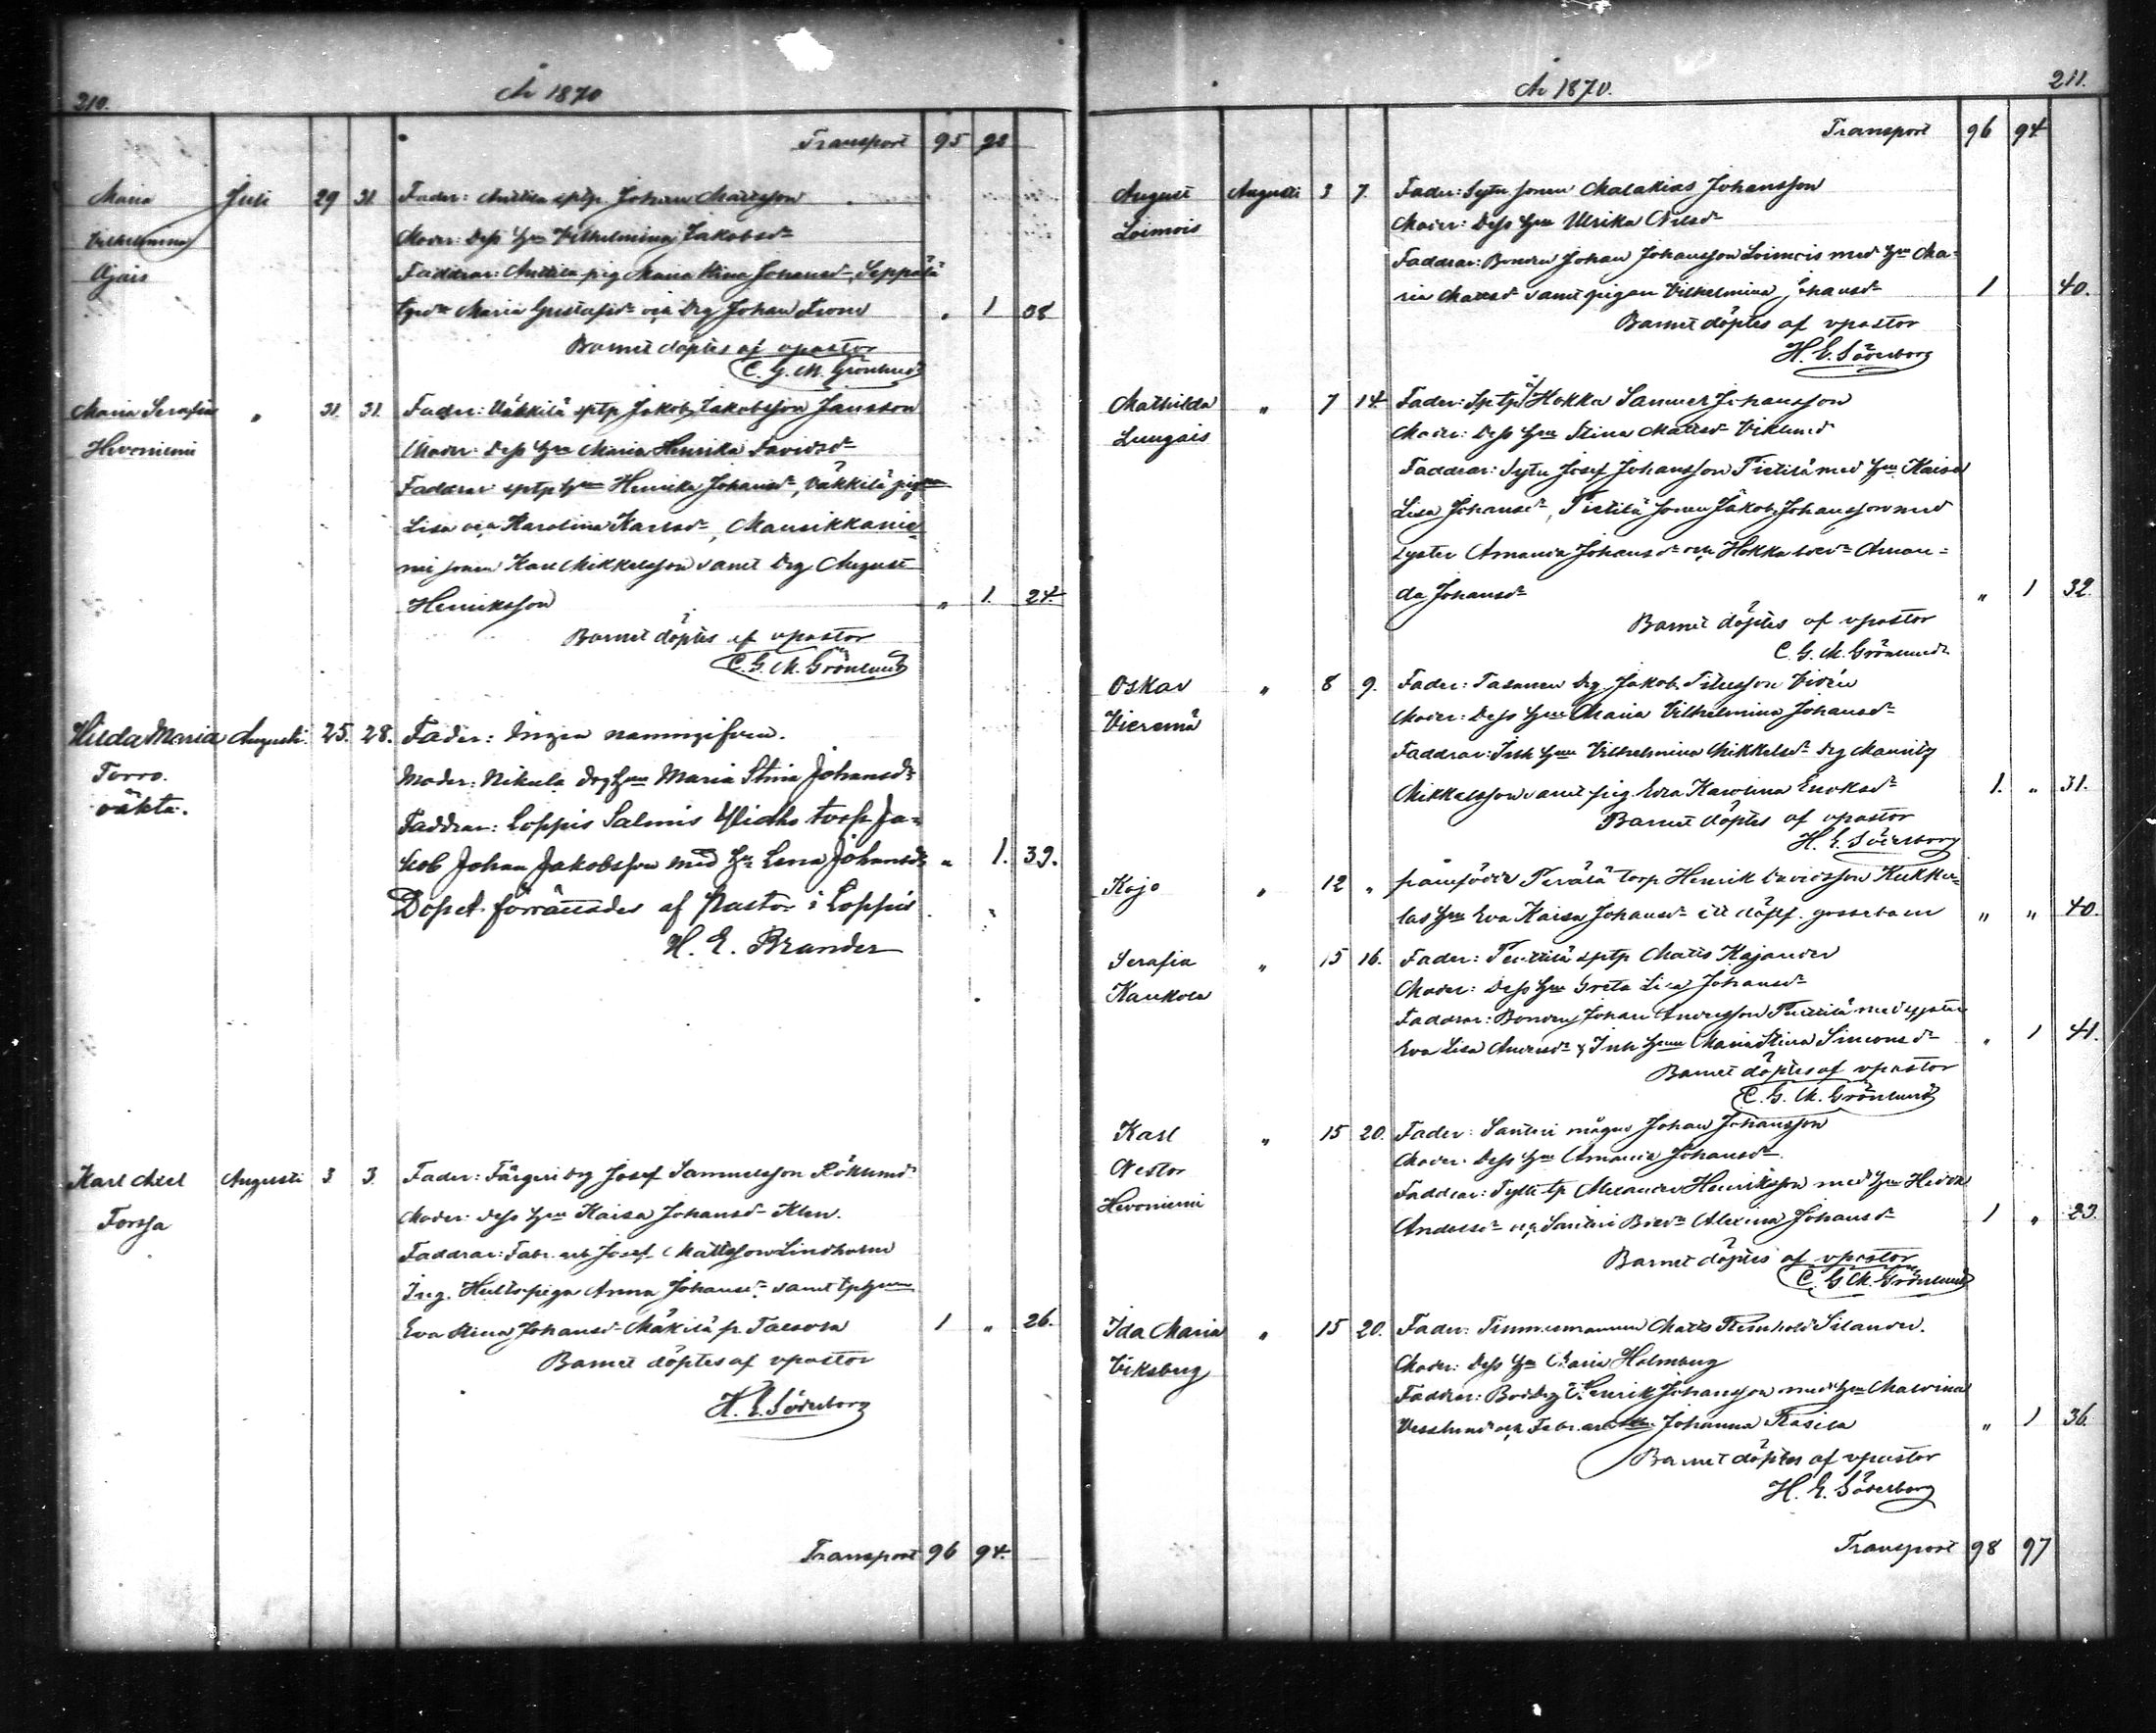 210.
År 1870
Transport 95 93
Maria Juli 29 31. Fader: Anttila sptp Johan Mattsson
Vilhelmina Moder: Dess hu Vilhelmina Jakobsdr
Ojais Faddrar: Anttila pig Maria Stina Johansdr, Seppälä
Maria Gustafsdr och Drg Johan " 1 38
Barnet döptes af vpastor
C. G. M. Grönlund
Maria Serafia " 31. 31. Fader: Väkkilä sptp Jakob Jakobsson Jansson
Hevoniemi Moder: Dess hu Maria Henrika Davidsdr
Faddrar sptp hu Henrika Johansdr, Väkkilä pigan
Lisa och Karolina Karlsdr, Mansikkanie-
mi sonen Karl Mikkelsson samt Drg August
Henriksson " 1. 24.
Barnet döptes af vpastor
C. G. M. Grönlund
Hilda Maria Augusti. 25. 28. Fader: Ingen namngifven.
Torro. Moder: Nikula drg hu Maria Stina Johansdr
oäkta. Faddrar: Loppis Salmis torp. Ja-
kob Johan Jakobsson med hu Lena Johansdr " 1. 39.
Dopet förrättades af Pastor i Loppis
H. E. Brander
Karl Axel Augusti 3 3. Fader: Färgeri drg Josef Samuelsson Röklund
Forssa Moder: Dess hu Kaisa Johansdr Klen.
Faddrar: Fabr. arb Josef Mattsson Lindholm
Jng. Hults piga Anna Johansdr samt tp hu
Eva Stina Johansdr Mäkilä fr Talsola 1 " 26.
Barnet döptes af vpastor
H. E. Söderborg
Transport 96 94.
211.
År 1870.
Transport 96 94
August Augusti 3 7. Fader: Sytn sonen Malakias Johansson
Loimois Moder: Dess hu Ulrika Nilsdr
Faddrar: Bonden Johan Johansson Loimois med hu Ma-
ria Mattsdr samt pigan Vilhelmina Johansdr 1 40.
Barnet döptes af vpastor
H. E. Söderborg
Mathilda " 7 14. Fader: Sptp å/ Hokka Samuel Johansson
Lungois Moder: Dess hu Stina Mattsdr Viklund
Faddrar: Sytn Josef Johansson Tietilä med hu Kaisa
Lisa Johansdr, Tietilä sonen Jakob Johansson med
syster Amanda Johansdr och Hokka Aman-
da Johansdr " 1 32.
Barnet döptes af vpastor
C. G. M. Grönlund
Oskar " 8 9. Fader: Tasanen drg Jakob Vidén
Vieremä Moder: Dess hu Maria Vilhelmina Johansdr
Faddrar: Inh hu Vilhelmina Mikkelsdr drg
Mikkelsson samt pig. Eva Karolina Enoksdr 1. " 31.
Barnet döptes af vpastor
H. E. Söderborg
Kojo " 12 " framfödde Perälä torp Henrik Davidsson Kukko-
las hu Eva Kaisa Johansdr ett dödf. gossebarn " " 40.
Serafia " 15 16. Fader: sptp Matts Kajander
Kaukola Moder: Dess hu Greta Lisa Johansdr
Faddrar: Bonden Johan Andersson med syster
Eva Lisa Andersdr & Inh hu Maria Stina Simonsdr " 1 41.
Barnet döptes af vpastor
C. G. M. Grönlund
Karl " 15 20. Fader: Santeri mågen Johan Johansson
Nestor Moder. Dess hu Amanda Johansdr
Hevoniemi Faddrar: tp Alexander Henriksson med hu Hedda
Andersdr och Santeri Alexina Johansdr 1 " 23.
Barnet döptes af vpastor
C. G. M. Grönlund
Ida Maria " 15 20. Fader: Timmermannen Matts Silander.
Viksberg Moder: Dess hu Maria Holmberg
Faddrar: Henrik Johansson med hu Malvina
och Fabr. arb Johanna Rasila " 1 36.
Barnet döptes af vpastor
H. E. Söderborg
Transport 98 97